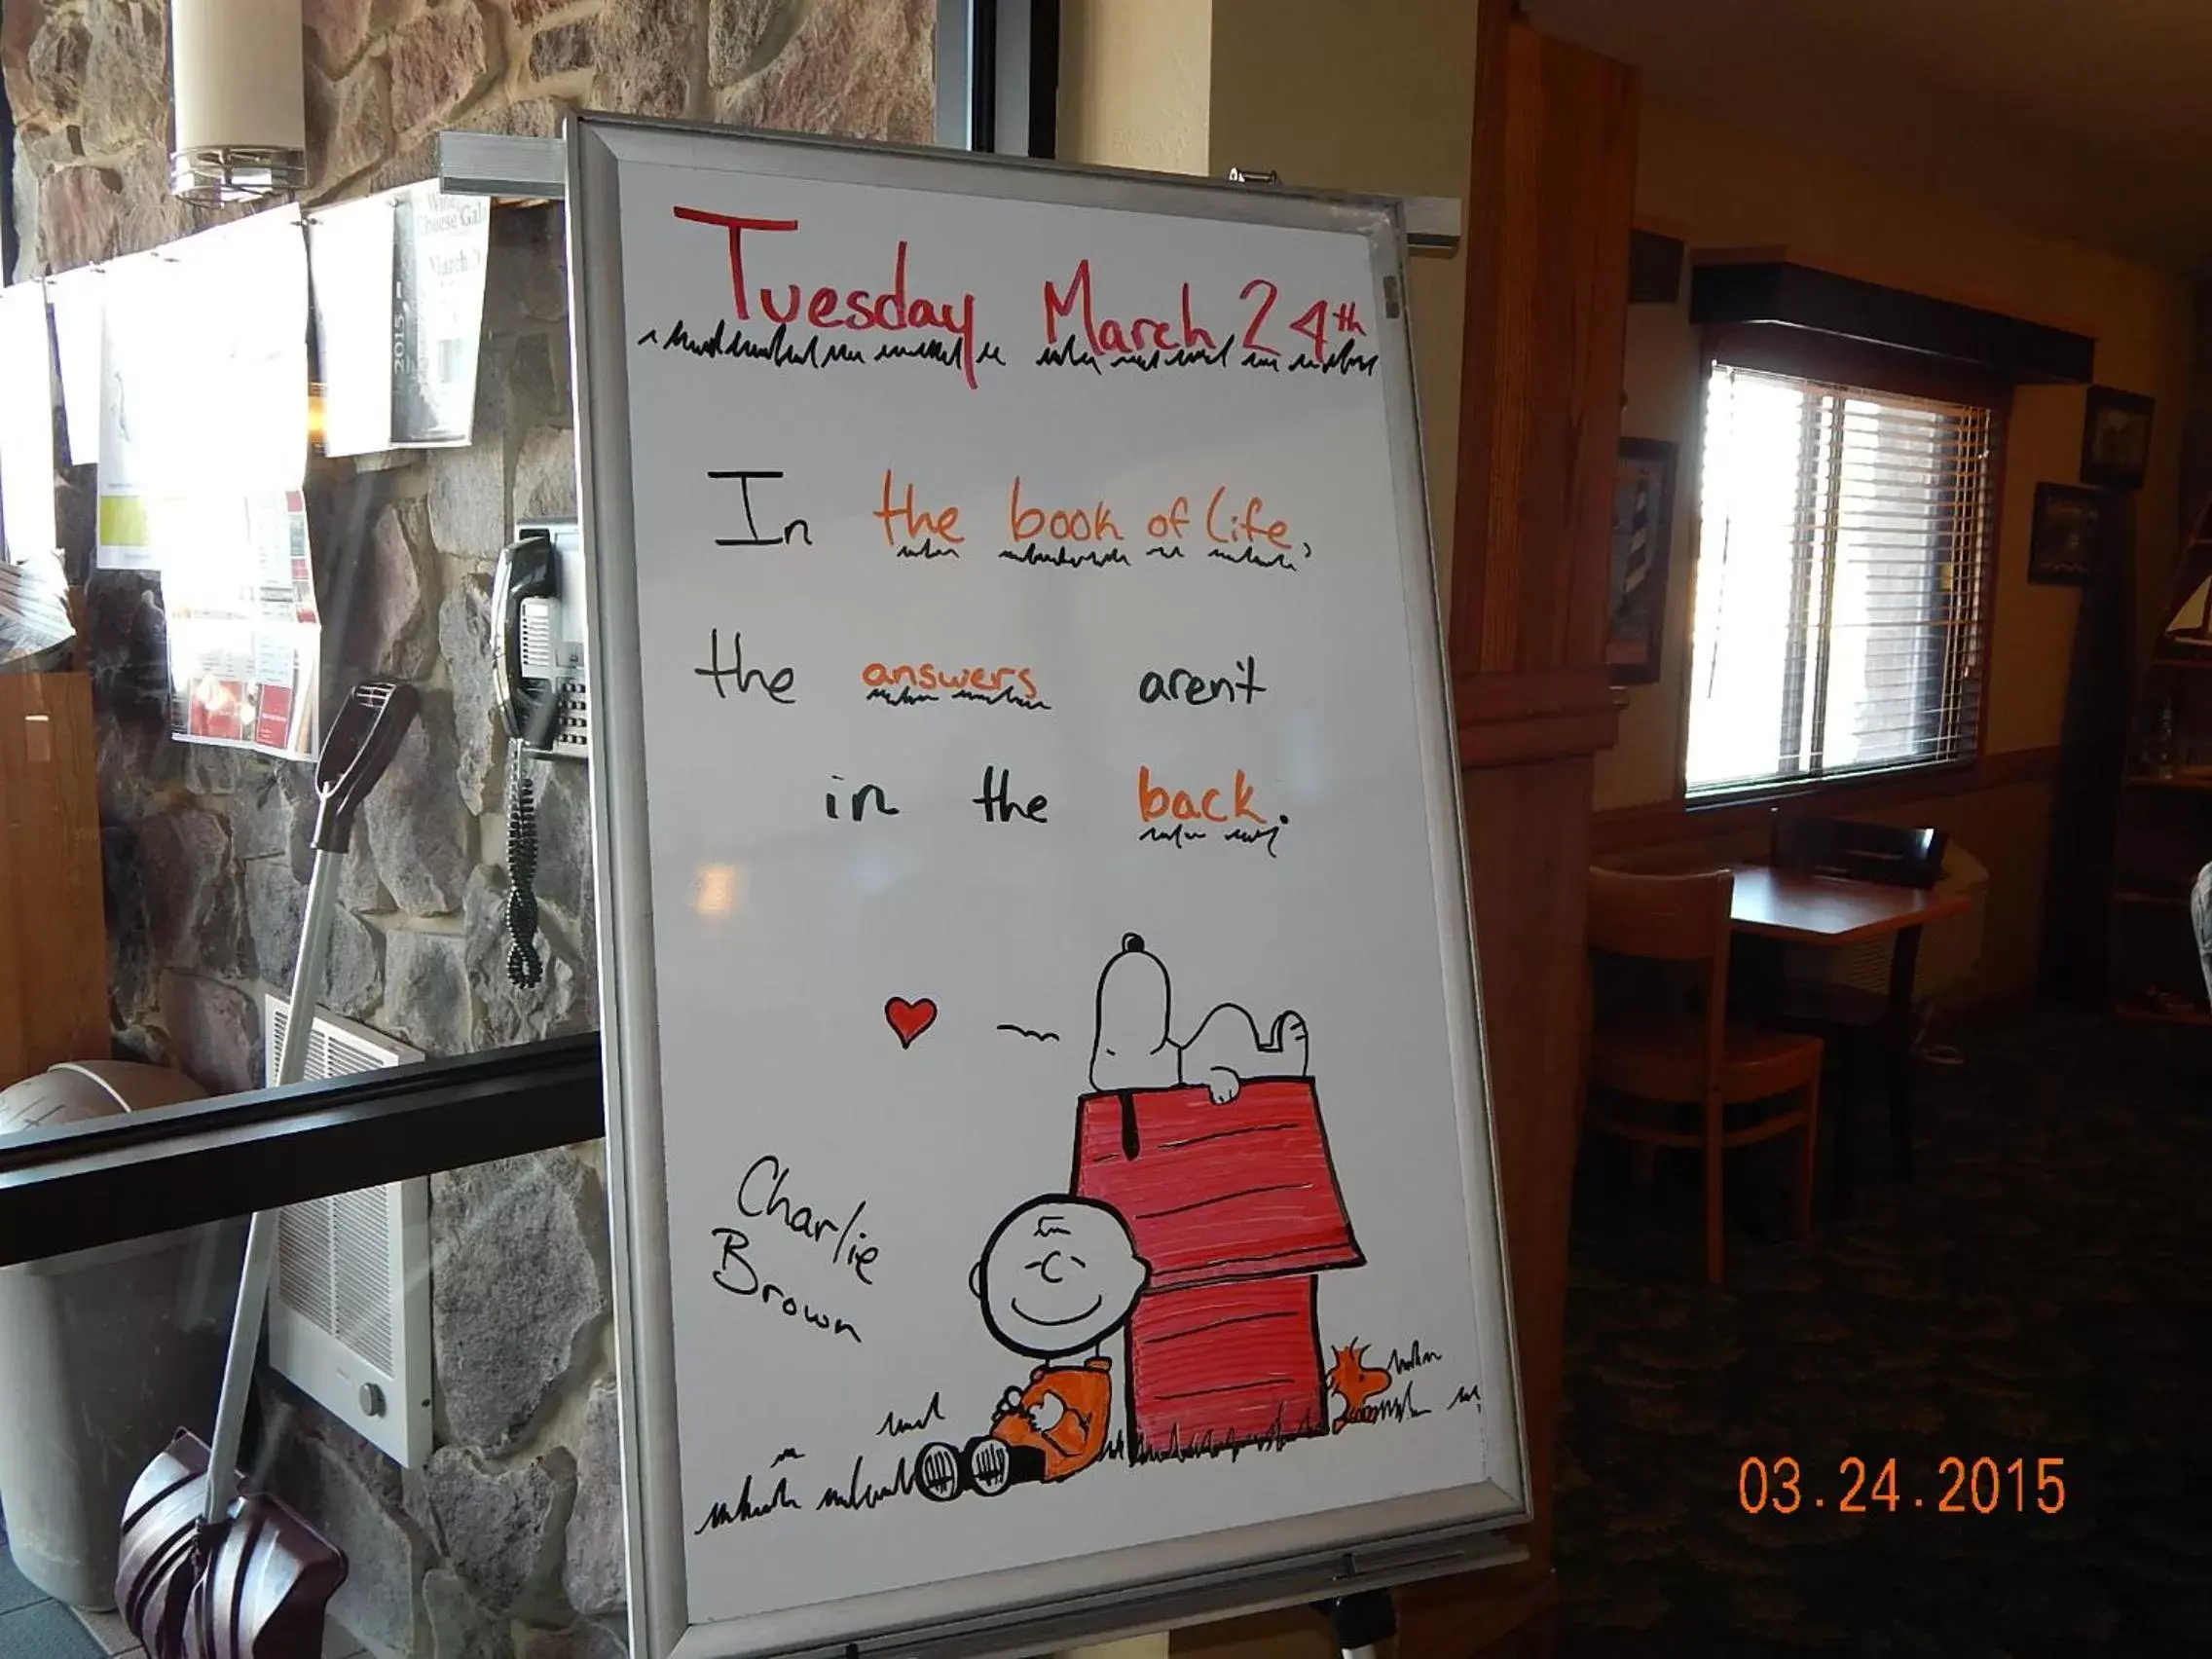 Tuesday March 24th
In the book of life,
the answers aren't
in the back.
Charlie
Brown
Wine
Cheese Gal
March
2015
03.24.2015